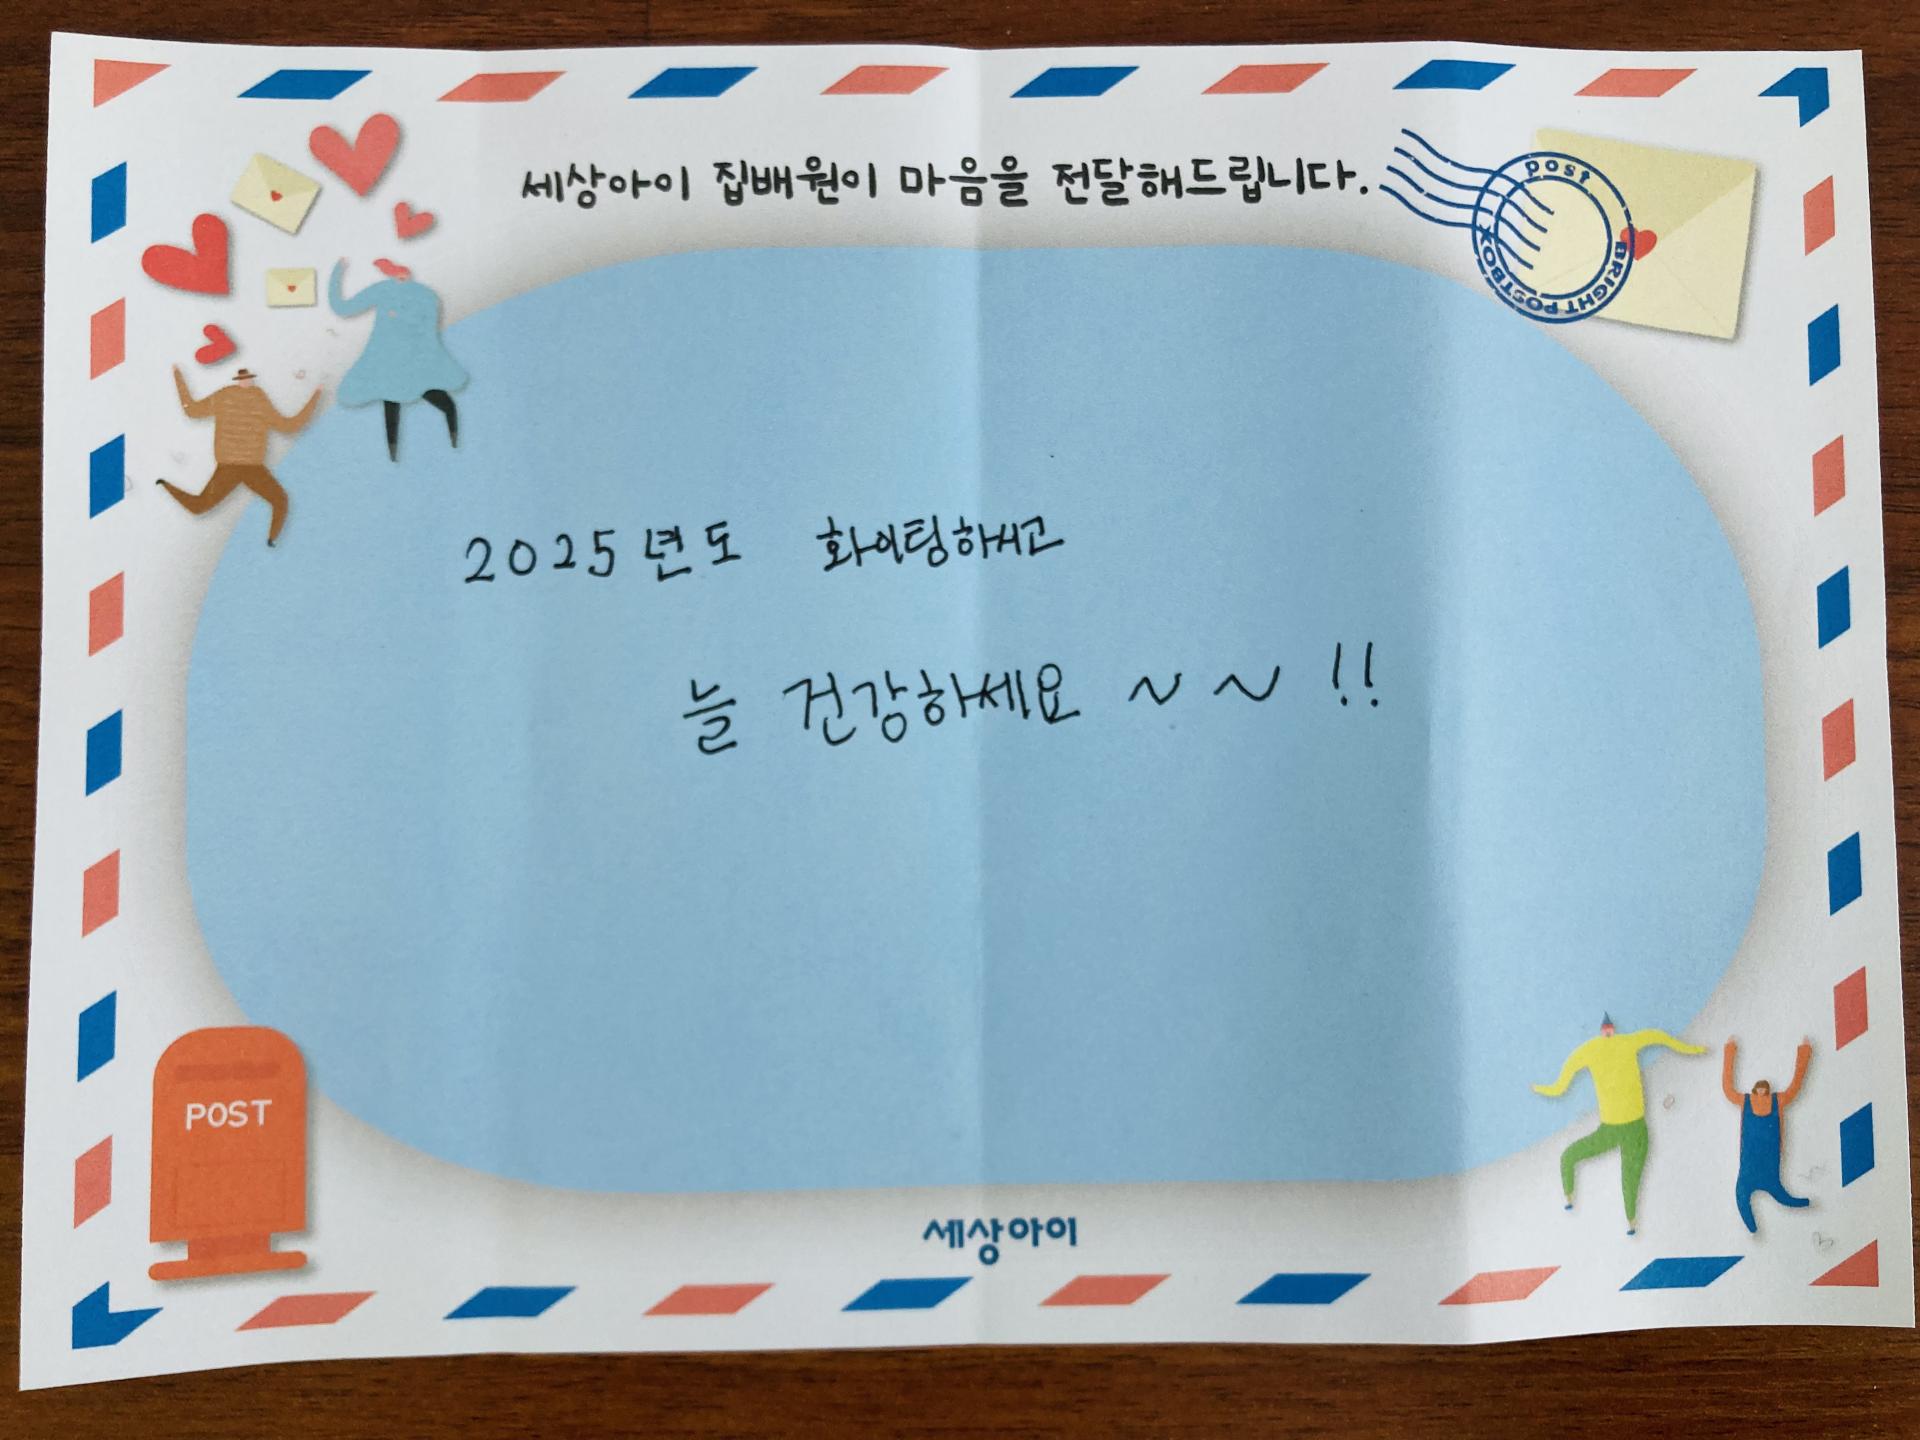 세상아이 집배원이 마음을 전달해드립니다.
post
BRIGHT POSTBOX
2025년도 화이팅하시고
늘 건강하세요 ~ ~ !!
POST
세상아이